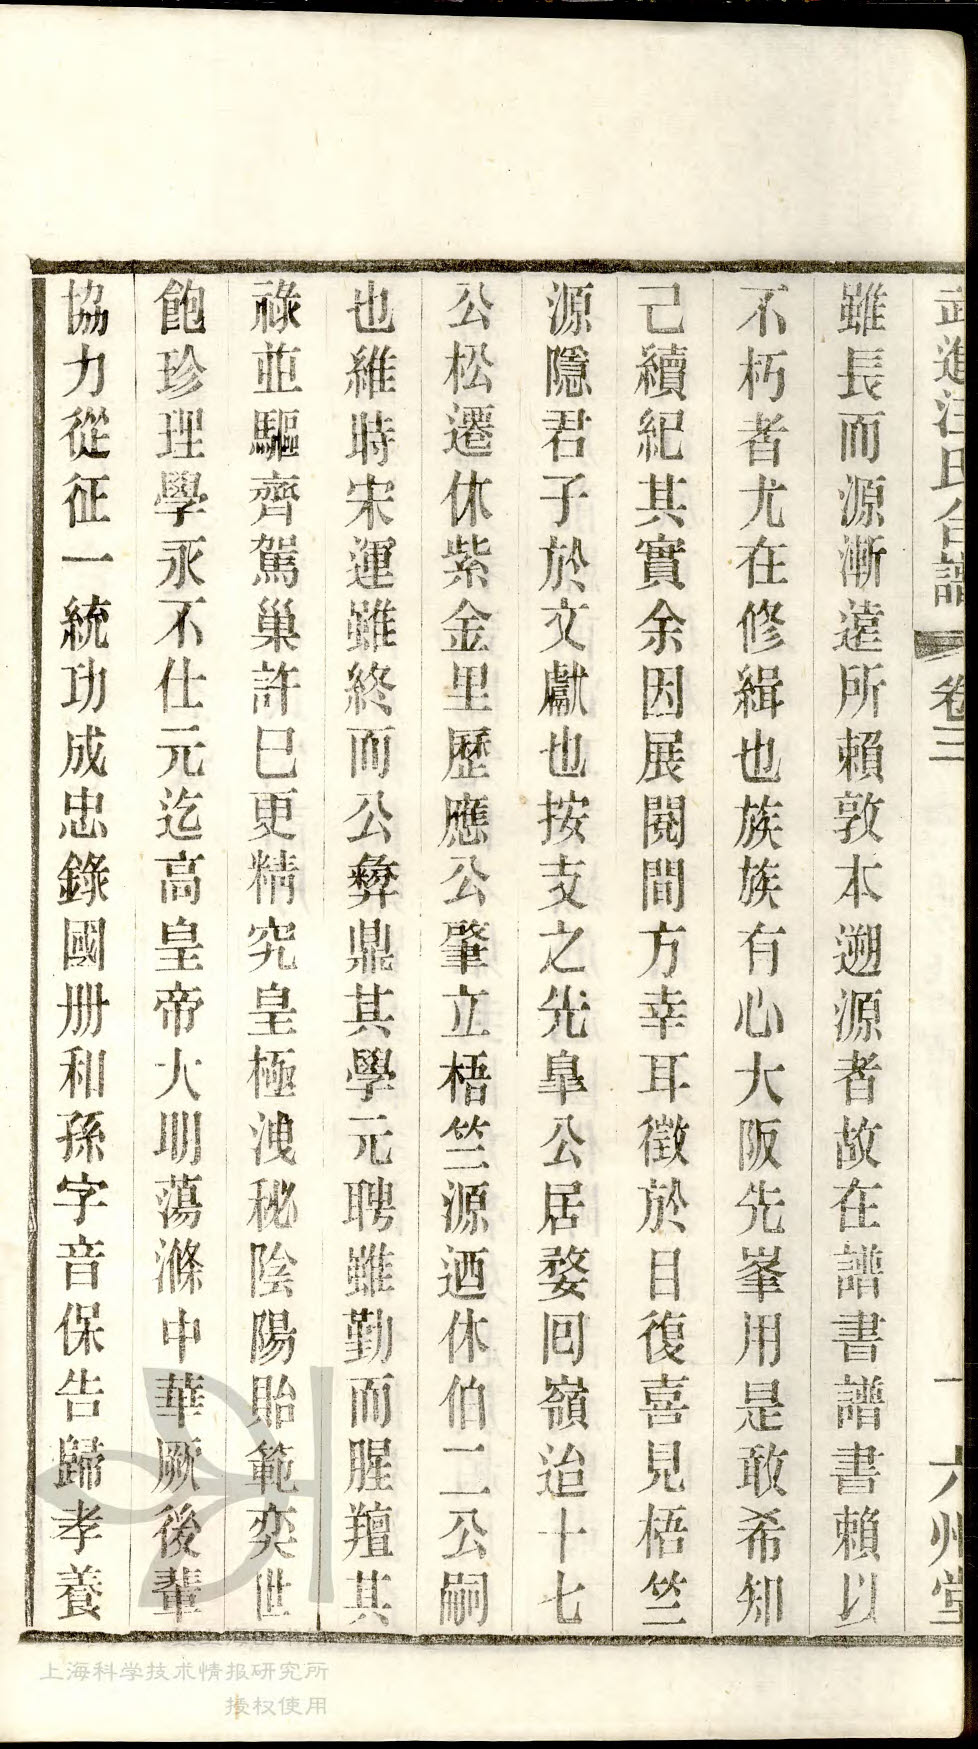 武進汪氏合譜 卷三 一 六州堂
雖長而源漸遠所賴敦本遡源者故在譜書譜書賴以
不朽者尤在修緝也族族有心大阪先峯用是敢希知
己續紀其實余因展閱間方幸耳徵於目復喜見梧竺
源隱君子於文獻也按支之先臯公居婺囘嶺迨十七
公松遷休紫金里歷應公肇立梧竺源迺休伯二公嗣
也維時宋運雖終而公彝鼎其學元聘雖勤而腥羶其
祿並驅齊駕巢許巳更精究皇極洩秘陰陽貽範奕世
飽珍理學永不仕元迄高皇帝大明蕩滌中華厥後輩
協力從征一統功成忠錄國册和孫字音保告歸孝養
上海科学技术情报研究所
授权使用